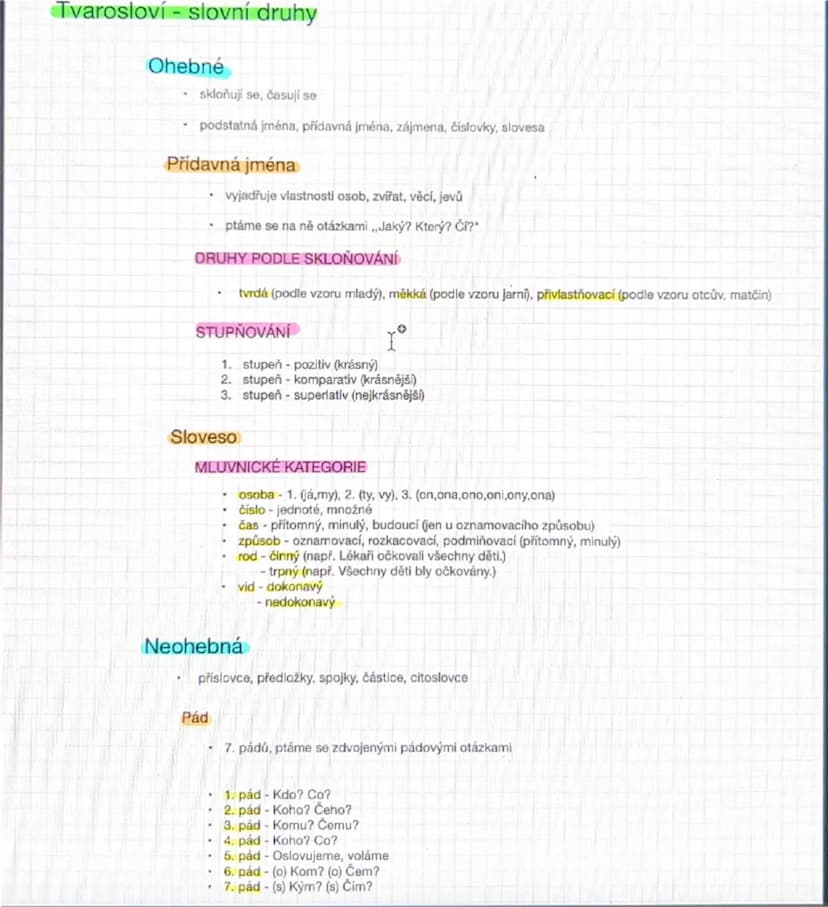 Tvarosloví - slovní druhy
Ohebné
• skloňují se, časují se
• podstatná jména, přídavná jména, zájmena, číslovky, slovesa
Přídavná jména
• vyjadřuje vlastnosti osob, zvířat, věcí, jevů
• ptáme se na ně otázkami ,,Jaký? Který? Čí?"
DRUHY PODLE SKLOŇOVÁNÍ
• tvrdá (podle vzoru mladý), měkká (podle vzoru jarní), přivlastňovací (podle vzoru otcův, matčin)
STUPŇOVÁNÍ
1. stupeň - pozitiv (krásný)
2. stupeň - komparativ (krásnější)
3. stupeň - superlativ (nejkrásnější)
Sloveso
MLUVNICKÉ KATEGORIE
• osoba - 1. (já,my), 2. (ty, vy), 3. (on,ona,ono,oni,ony,ona)
• číslo - jednoté, množné
• čas - přítomný, minulý, budoucí (jen u oznamovacího způsobu)
• způsob - oznamovací, rozkazovací, podmiňovací (přítomný, minulý)
• rod - činný (např. Lékaři očkovali všechny děti.)
- trpný (např. Všechny děti bly očkovány.)
• vid - dokonavý
- nedokonavý
Neohebná
• příslovce, předložky, spojky, částice, citoslovce
Pád
• 7. pádů, ptáme se zdvojenými pádovými otázkami
• 1. pád - Kdo? Co?
• 2. pád - Koho? Čeho?
• 3. pád - Komu? Čemu?
• 4. pád - Koho? Co?
• 5. pád - Oslovujeme, voláme
• 6. pád - (o) Kom? (o) Čem?
• 7. pád - (s) Kým? (s) Čím?